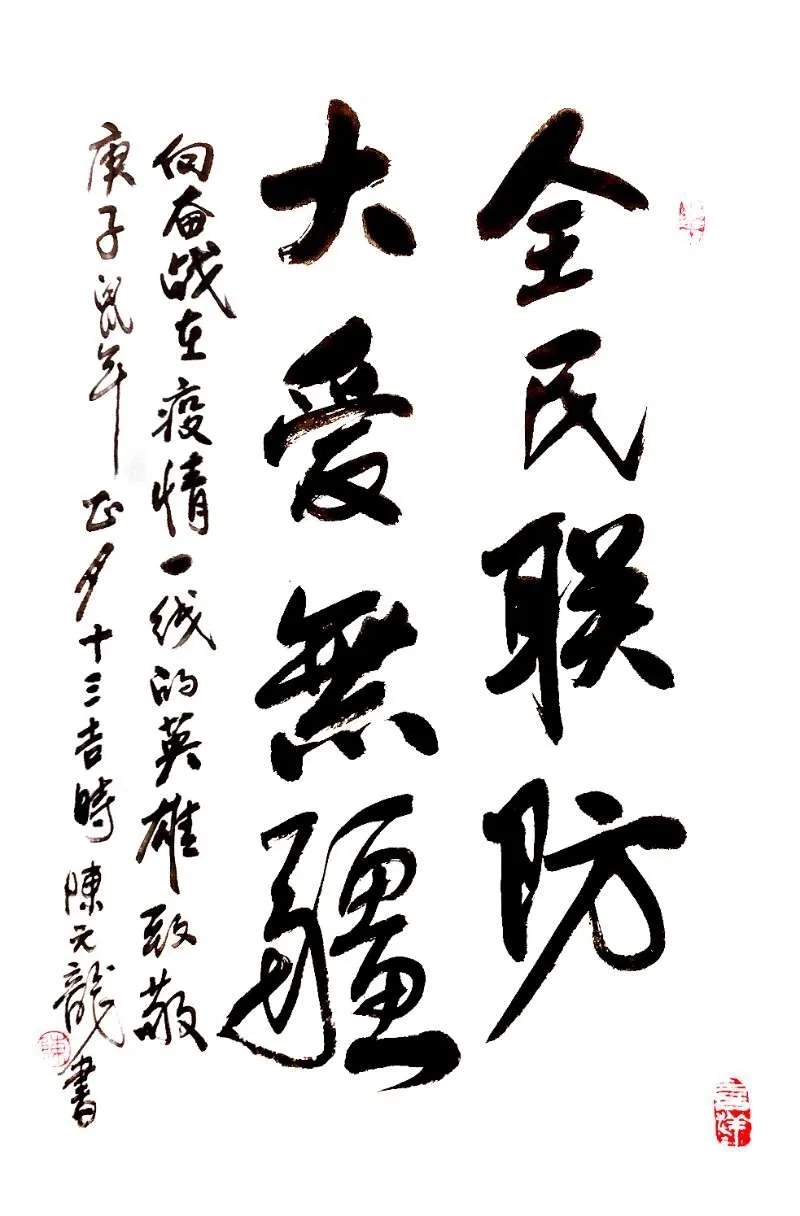 全民联防
大爱無疆
向奋战在疫情一线的英雄致敬
庚子鼠年正月十三吉時陳元龍書